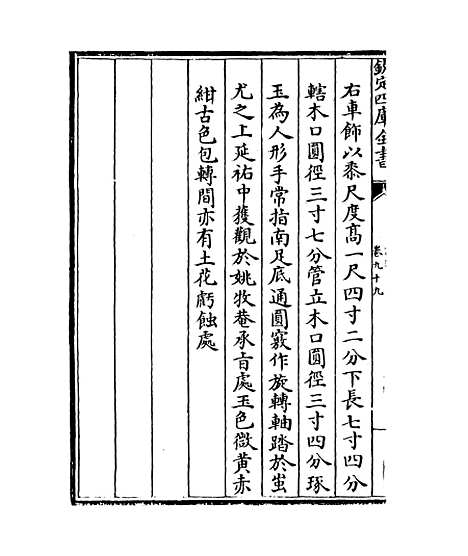 欽定四庫全書
卷九十九
右車飾以黍尺度髙一尺四寸二分下長七寸四分
轄木口圓徑三寸七分管立木口圓徑三寸四分琢
玉為人形手常指南足底通圓竅作旋轉軸踏於蚩
尤之上延祐中獲觀於姚牧菴承㫖處玉色微黄赤
紺古色包轉間亦有土花虧蝕處